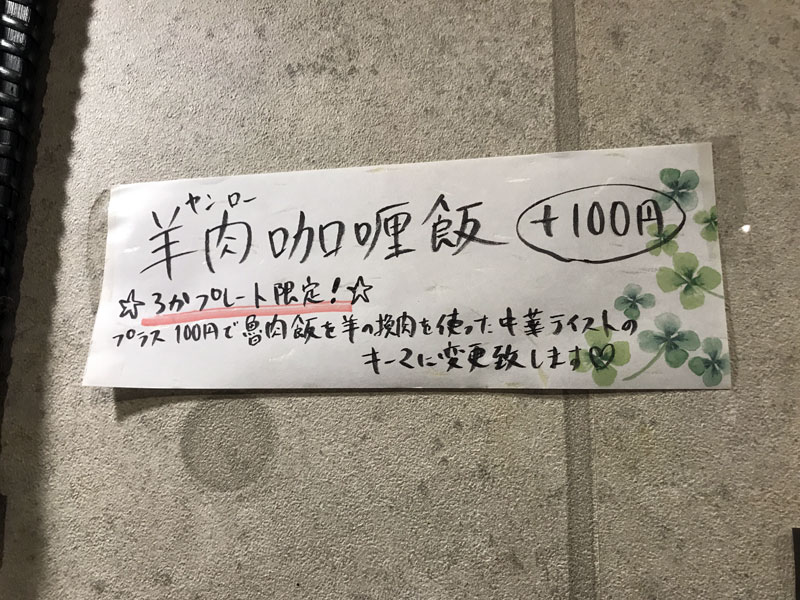 ヤンロー
羊肉咖喱飯 +100円
☆3かプレート限定!☆
プラス100円で魯肉飯を羊の挽肉を使った中華テイストの
キーマに変更致します♡